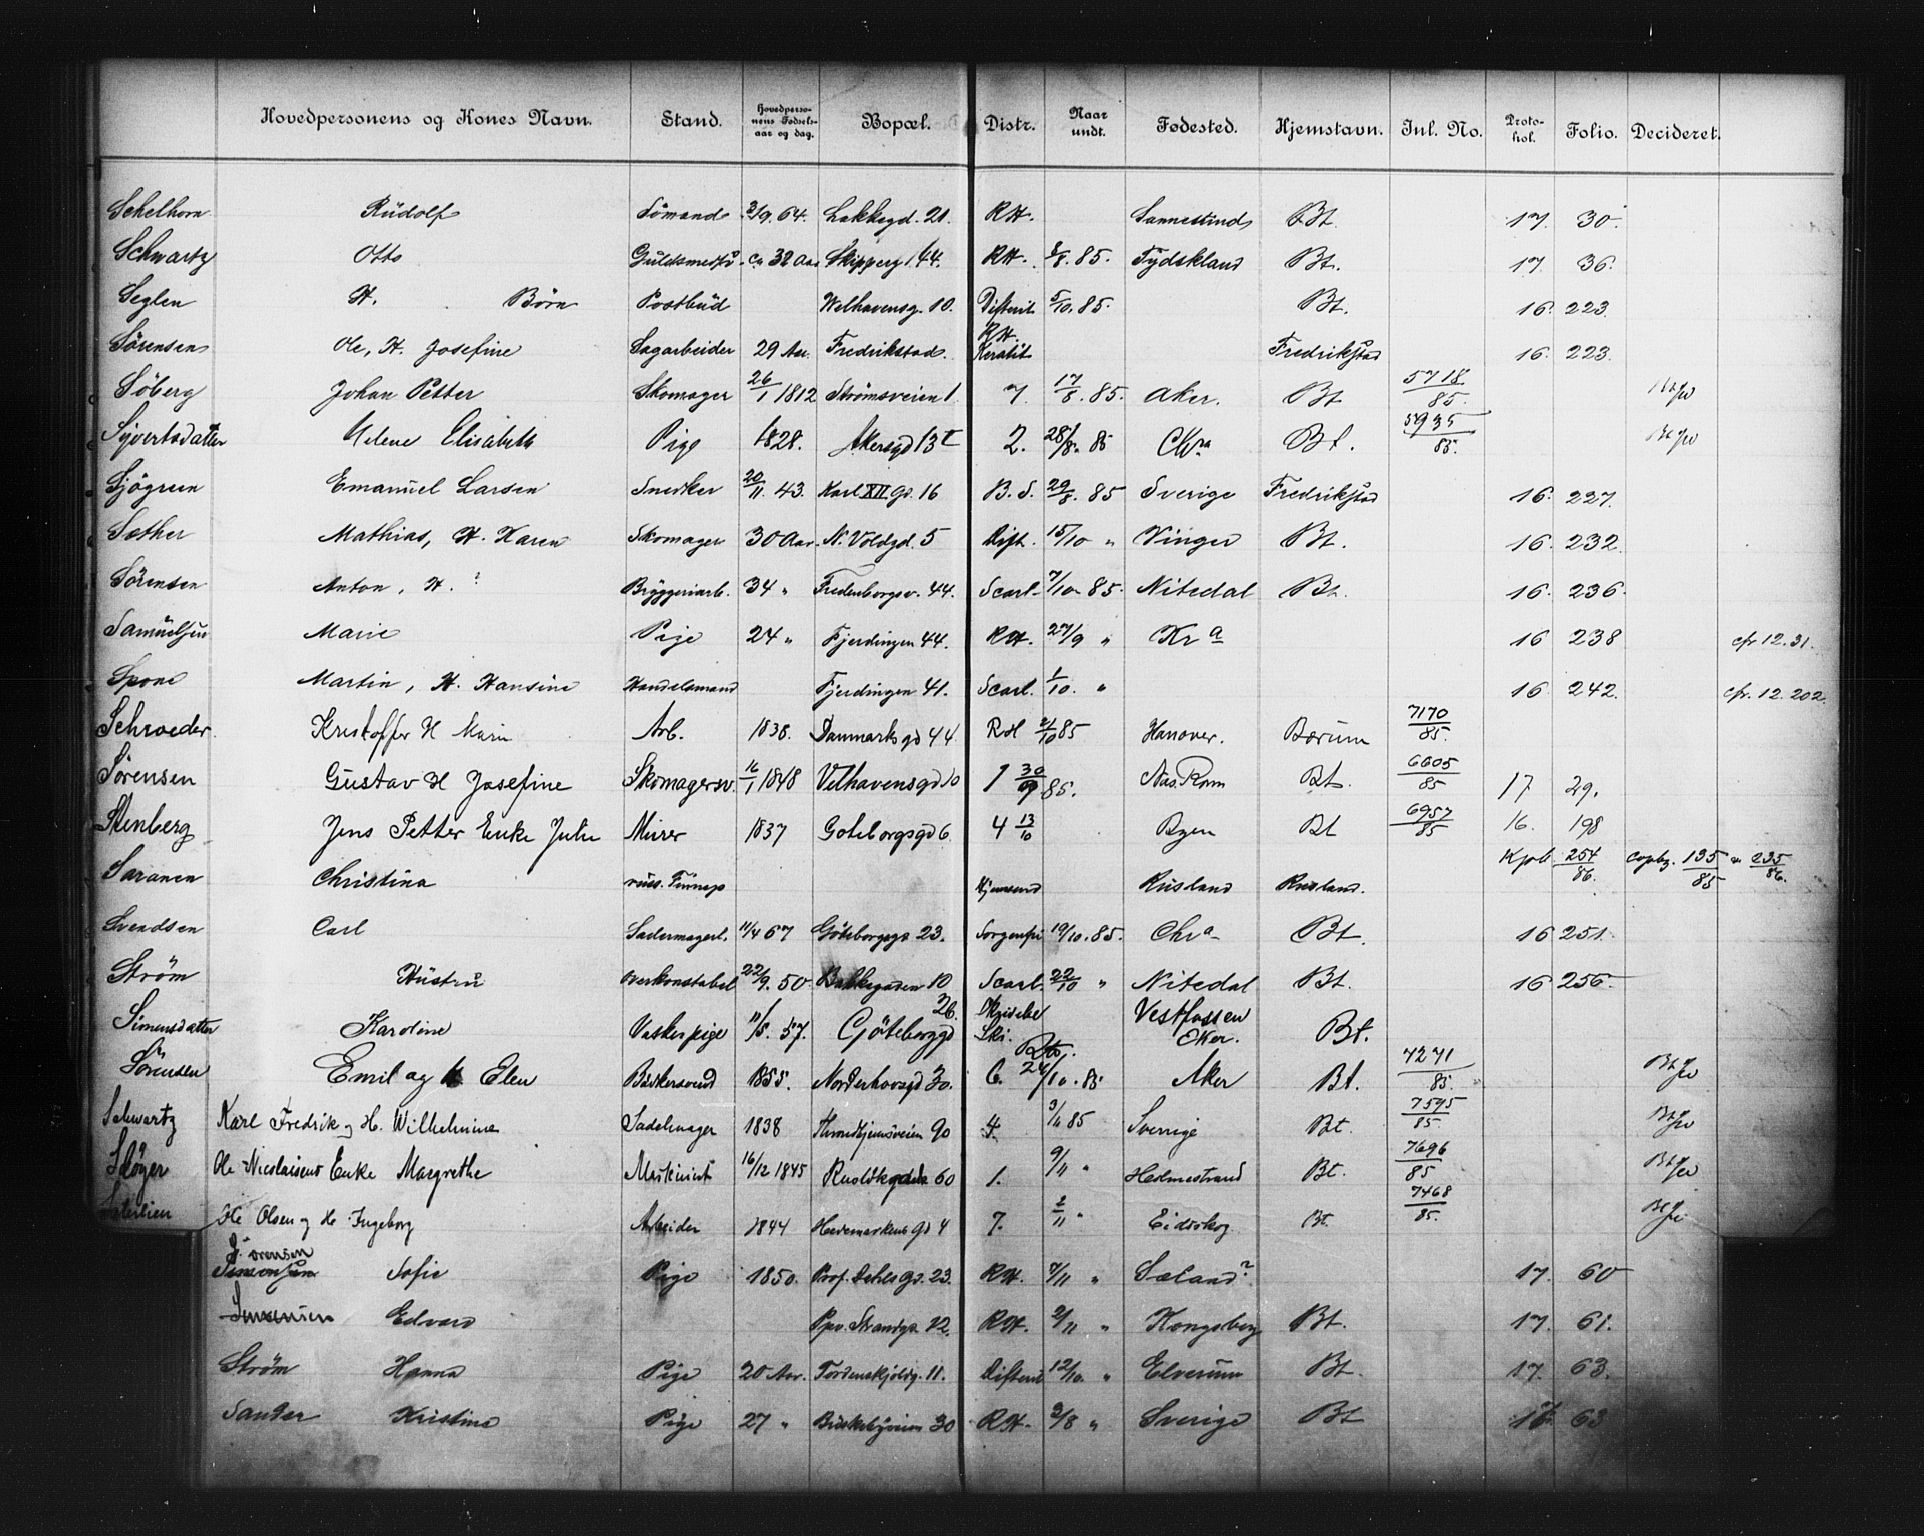 Hovedpersonens og Kones Navn. Stand. Hovedpersonens Fødselsaar og dag. Bopæl. Distr. Naar undt. Fødested. Hjemstavn. Inl. No. Protokol. Folio. Decideret.
Schelhorn Rudolf Sømand 3/9. 64. Lakkegd. 21. RH. Sannesund Bt. 17. 30.
Schwartz Otto ca 32 Aar Skipperg. 44. RH. 5/8. 85. Tydskland Bt. 17. 36.
Seglen H. Børn Postbud Welhavensg. 10. Difterit 5/10. 85. Bt. 16. 223.
Sørensen Ole, H. Josefine Sagarbeider 29 Aar Fredrikstad. RH. Keratit Fredrikstad 16. 223.
Söberg Johan Petter Skomager 26/1 1812 Strømsveien 1 7. 17/8. 85. Aker. Bt 5718/85.
Syvertsdatter Helene Elisabeth Pige 1828. Akersgd 13 2. 28/8. 85 Chra Bt. 5935/85.
Sjögreen Emanuel Larsen Snedker 20/11. 43. Karl XII Gd. 16 B. S. 29/8. 85 Sverige Fredrikstad 16. 227.
Sæther Mathias, H. Karen Skomager 30 Aar. N. Voldgd. 5 Dift. 15/10 " Vinger Bt. 16. 232.
Sörensen Anton, H. ? Bryggeriarb. 34 " Fredenborgsv. 44. Scarl. 7/10. 85. Nitedal Bt. 16. 236.
Samuelsen Marie Pige 24 " Fjerdingen 44. RH. 27/9 " Kra 16 238 cfr 12. 31.
Spone Martin, H. Hansine Handelsmand Fjerdingen 41. Scarl. 1/10. " 16 242. cfr. 12. 202.
Schroeder Kristoffer H Marie Arb. 1838. Danmarksgd 44 RH 2/10 85 Hanover. Bærum 7170/85.
Sørensen Gustav H Josefine Skomagersv. 16/1 1848 Velhavensgd 10 1 30/9 85. Næs. Rom Bt. 6605/85 17 29.
Stenberg Jens Petter Enke Julie Murer 1837 Goteborgsgd 6. 4 13/10 Byen Bt 6957/85 16. 198
Saranen Christina russ. Finnap Hjemsend Rusland Rusland. Kpb 254/86. Copbg. 135/85 235/86.
Svendsen Carl Sadermagerl. 11/4 67 Göteborgsgd 23. Sorgenfri 19/10. 85. Chra Bt. 16 251.
Ström Hustru overkonstabel 22/9. 50 Bakkegaden 10 Scarl. 22/10 " Nitedal Bt. 16 256.
Simensdatter Karoline Vaskepige 11/5. 57. Göteborggd 26. Ski. Vestfossen Eker. Bt.
Sörensen Emil og H Elen 1855. Norderhovsgd 30. 6. 24/10. 85 Aker Bt. 7271/85.
Schwartz Karl Fredrik og H. Wilhelmine Sadelmager 1838 Throndhjemsveien 90 4. 3/11 85 Sverrige Bt. 7595/85
Ole Nicolaisens Enke Margrethe Maskinist 16/12 1845 60 1. 9/11 " Holmestrand Bt. 7696/85
Ole Olsen og H. Ingeborg Arbeider 1844 Hedemarkens Gd 4 7. 2/11 " Eidskog Bt. 7468/85.
Sörensen Simonsen Sofie Pige 1850. Prof. Dahls Gd. 23. RH. 7/11 " Sæland? 17. 60
Edvard Ppv. Strandgd. 12. RH. 9/11 " Kongsberg Bt. 17. 61.
Ström Hanna Pige 20 Aar. Tordenskjoldg. 11. Difterit 12/10. " Elverum Bt. 17. 63.
Sander Kristine Pige 27 " 30 RH. 2/8 " Sverige Bt 63